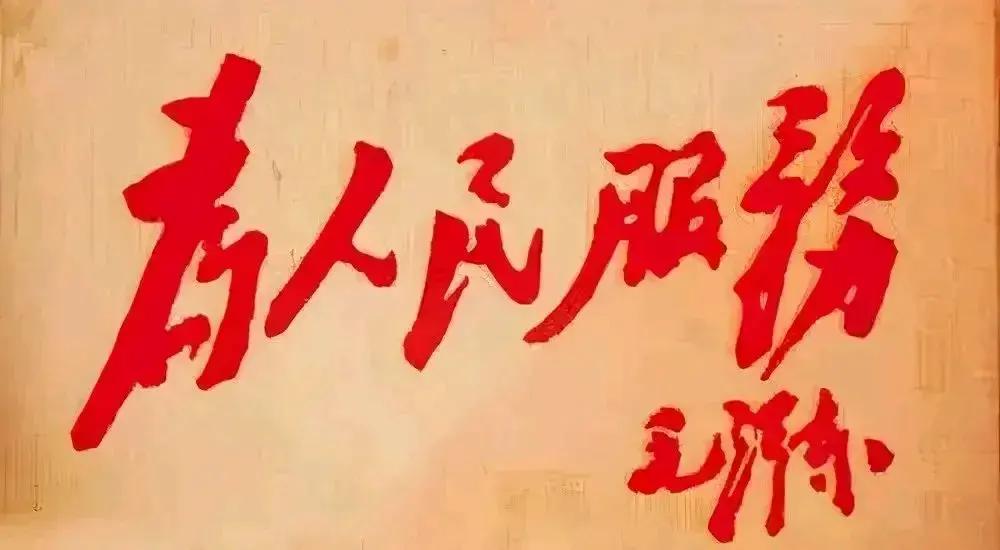 為人民服務
毛澤东